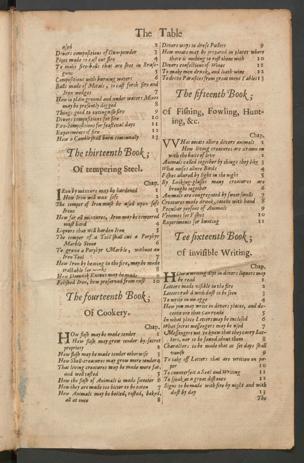 The Table
used 2
Divers compositions of Gun-powder 3
Pipes made to cast out fire 4
To make fire-balls that are shot in Brass-
guns 5
Compositions with burning waters 6
Balls made of Metals, to cast forth fire and
Iron wedges 7
How in plain ground and under waters Mines
may be presently digged 8
Things good to extinguish fire 9
Divers compositions for fire 10
Fire-compositions for festival days 11
Experiments of fire 12
How a Candle shall burn continually 13
The thirteenth Book;
Of tempering Steel.
Chap.
Iron by mixture may be hardened 1
How Iron will wax soft 2
The temper of Iron must be used upon soft
3
How for all mixtures, Iron may be tempered
most hard 4
Liquors that will harden Iron 5
The temper of a Tool shall cut a Porphyr
Marble Stone 6
To grave a Porphyr Marble, without an
Iron Tool 7
How Iron by heating in the fire, may be made
How Damask Knives may be made
Polished Iron, how preserved from rust
The fourteenth Book;
Of Cookery.
Chap.
How flesh may be made tender 1
How flesh may grow tender by secret
propriety 2
How flesh may be made tender otherwise 3
How Shell-creatures may grow more tender 4
That living creatures may be made more fat,
and well tasted 5
How the flesh of Animals is made sweeter 6
How they are made too bitter to be eaten 7
How Animals may be boiled, rosted, baked,
all at once 8
Divers ways to dress Pullets 9
How meats may be prepared in places where
there is nothing to rost them with 10
Divers confections of Wines 11
To make men drunk, and loath wine 12
To drive Parasites from great mens Tables 13
The fifteenth Book;
Of Fishing, Fowling, Hunt-
ing, &c.
Chap.
What meats allure divers animals 1
How living creatures are drawn on
with the baits of love 2
Animals called together by things they like 3
What noises allure Birds 4
Fishes allured by light in the night 5
By Looking-glasses many creatures are
brought together 6
Animals are congregated by sweet smells 7
Creatures made drunk, catcht with hand 8
Peculiar poysons of Animals 9
Venomes for Fishes 10
Experiments for hunting 11
Tee sixteenth Book;
Of invisible Writing.
Chap.
How a writing dipt in divers liquors may
be read 1
Letters made visible in the fire 2
Letters rub'd with dust to be seen 3
To write in an egge 4
How you may write in divers places, and de-
ceive one that can reade 5
In what place Letters may be inclosed 6
What secret messengers may be used 7
Messengers not to know that they carry Let-
ters, nor to be found about them 8
Characters to be made that at set days shall
vanish 9
To take off Letters that are written on pa-
per 10
To counterfeit a Seal and Writing 11
To speak at a great distance 12
Signs to be made with fire by night and with
dust by day 13
The